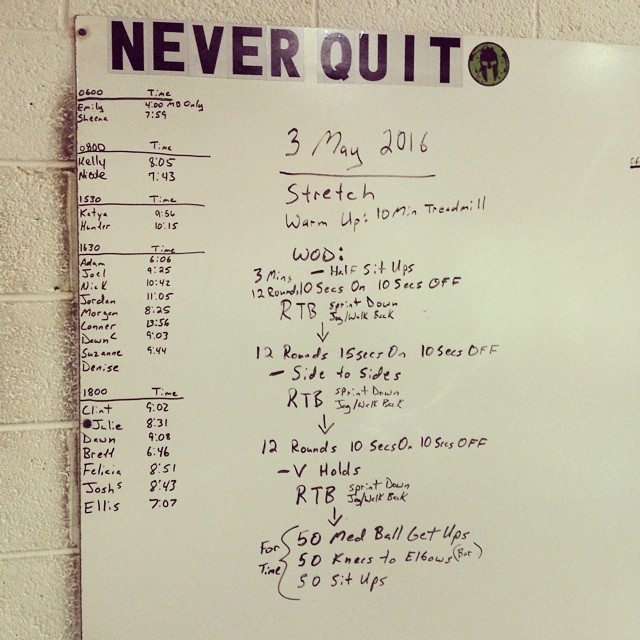 NEVER QUIT
0600 Time
Emily 4:00 MB Only
Sheena 7:59
0800 Time
Kelly 8:05
Nicole 7:43
1530 Time
Katya 9:56
Hunter 10:15
1630 Time
Adam 6:06
Joel 9:25
Nick 10:42
Jordan 11:05
Morgen 8:25
Conner 13:56
Dawn C 9:03
Suzanne 9:44
Denise
1800 Time
Clint 9:02
Julie 8:31
Dawn 9:08
Brett 6:46
Felicia 8:51
Josh S 8:43
Ellis 7:07
3 May 2016
Stretch
Warm Up: 10 Min Treadmill
WOD:
3 Mins - Half Sit Ups
12 Rounds 10 Secs On 10 Secs OFF
RTB Sprint Down
Jog/Walk Back
12 Rounds 15 Secs On 10 Secs OFF
- Side to Sides
RTB Sprint Down
Jog/Walk Back
12 Rounds 10 Secs On 10 Secs OFF
- V Holds
RTB Sprint Down
Jog/Walk Back
For Time
50 Med Ball Get Ups
50 Knees to Elbows (Bar)
50 Sit Ups